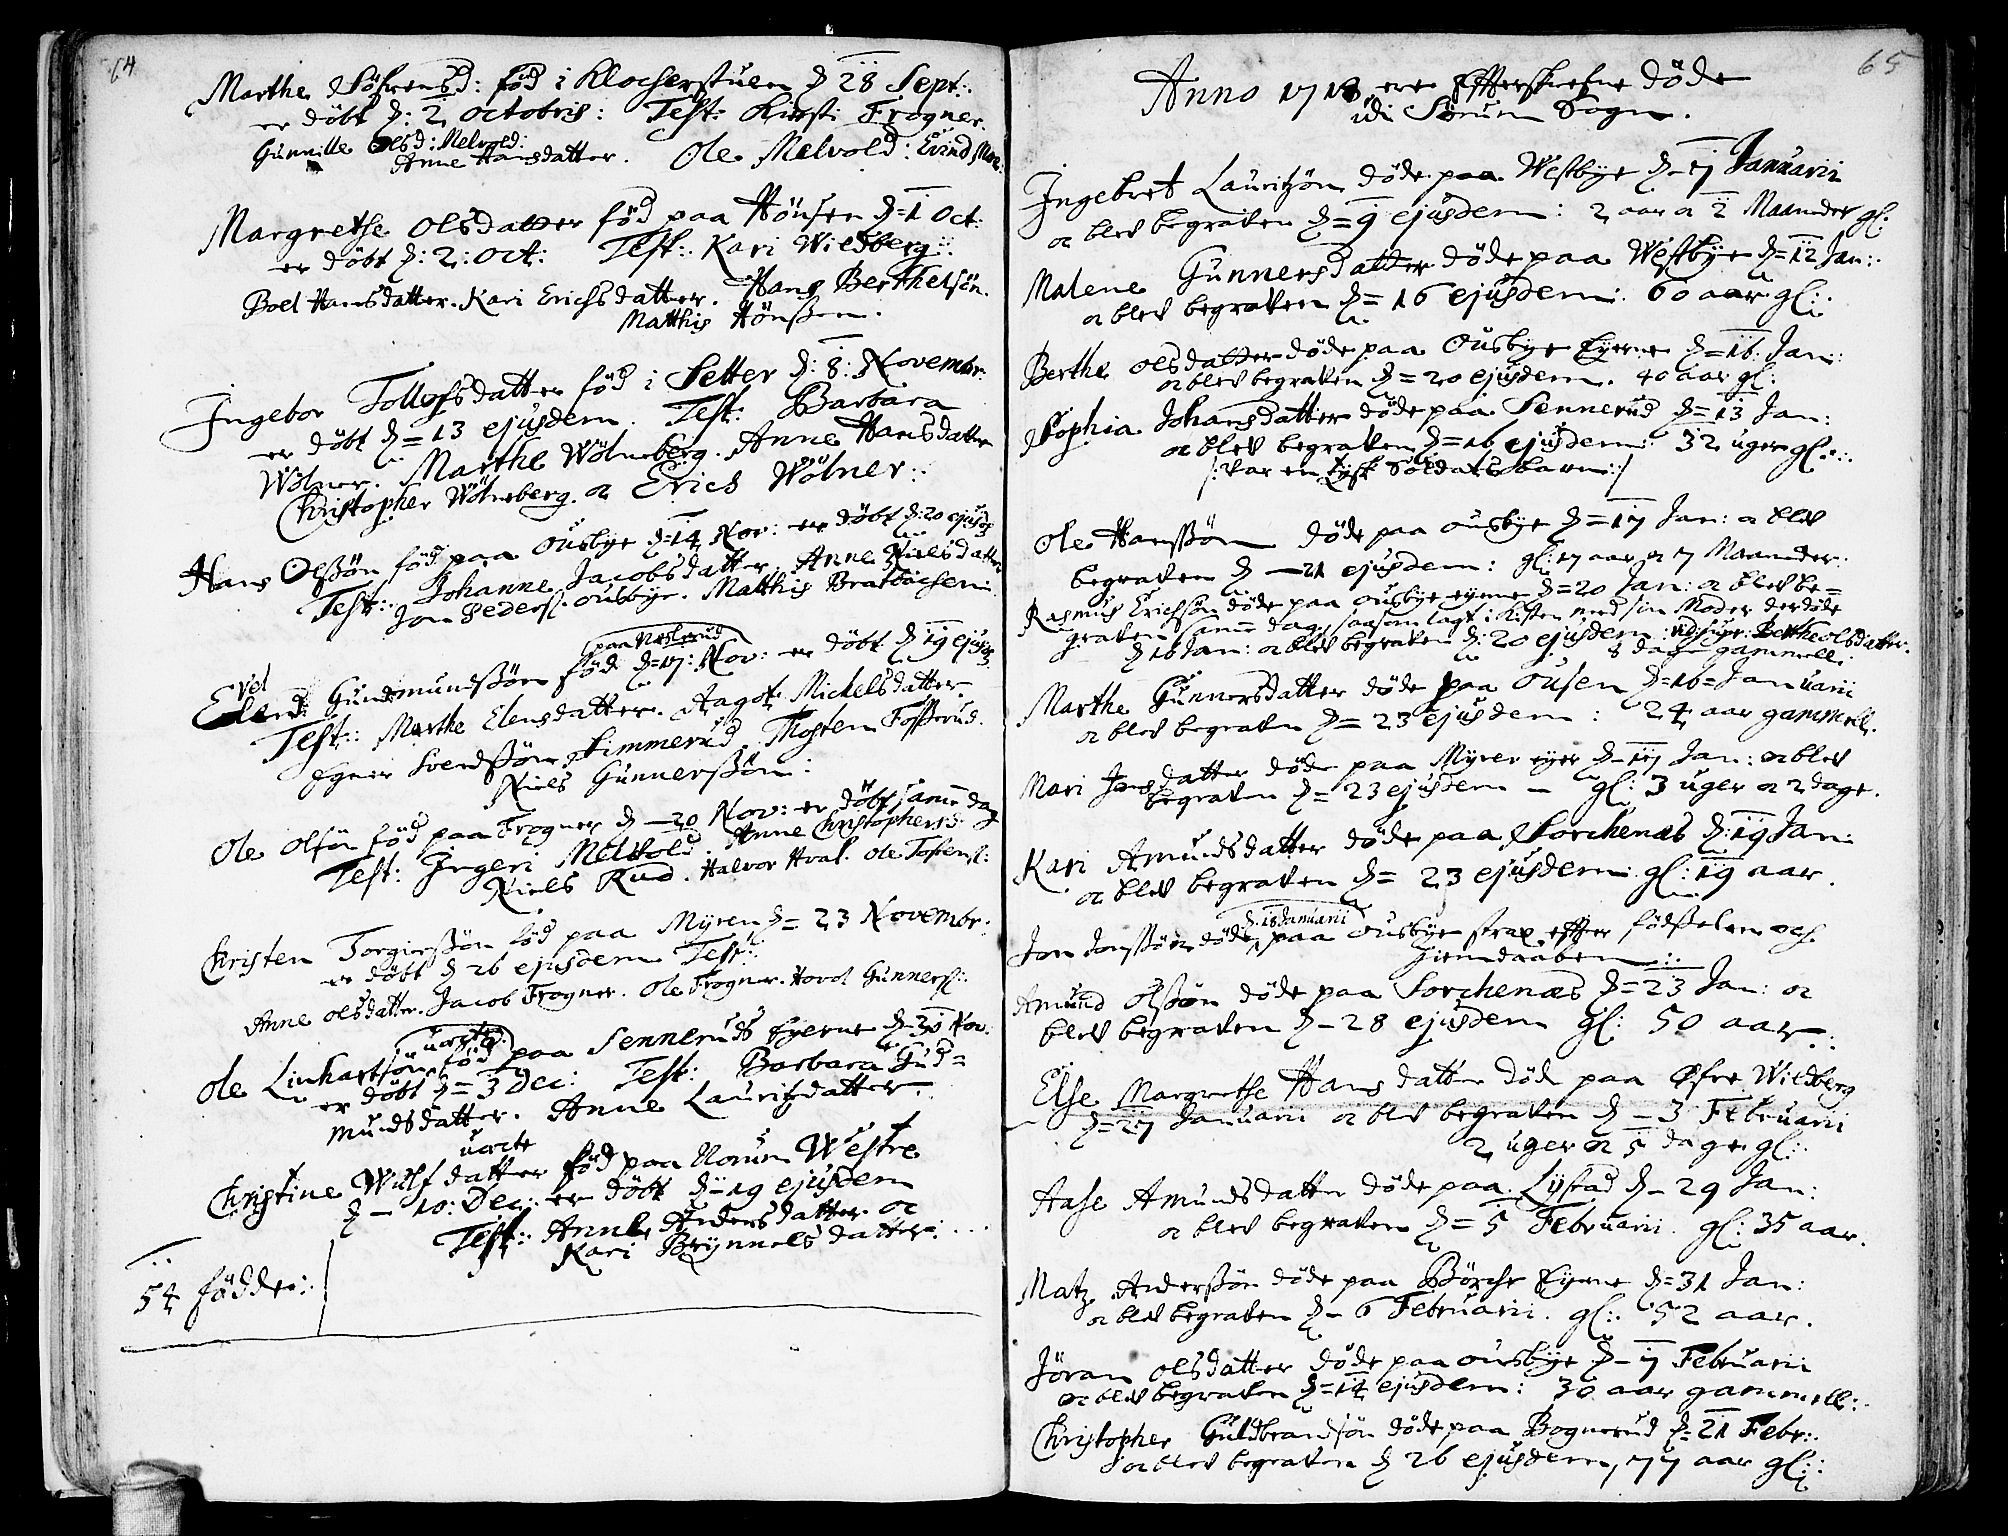 64
Marthe Söfrensd: föd i Klocherstuen d 28 Sept:
er döbt d: 2 Octobris: Test: Kirsti Frogner.
Gunnille Olsd: Melvold:
Anne Hansdatter. Ole Melvold: Evind
Margrethe Olsdatter föd paa Hönsen d=1 Oct:
er döbt d: 2: Oct: Test: Kari Wildberg:
Boel Hansdatter. Kari Erichsdatter. Hans Berthelsön.
Matthis Hönssen.
Ingebor Tollofsdatter föd i Setter d: 8: Novembr:
er döbt d=13 ejusdem. Test: Barbara
Wölner. Marthe Wölneberg. Anne Hansdatter
Christopher Wölneberg. oc Erich Wölner:
Hans Olssön föd paa Ousbye d=14 Nov: er döbt d: 20 ejusd
Test: Johanne Jacobsdatter. Anne Nielsdatter
Jon Peders. Ousbye. Matthis Bratbachen.
paa Neslerud
Evel
Elend Gundmundssön föd d=17: Nov: er döbt d 19 ejusd
Test: Marthe Elensdatter. Aagot Michelsdatter.
Svendssön Timmerud Thosten Fosserud.
Niels Gunnerssön:
Ole Olsön föd paa Frogner d-20 Nov: er döbt samme dag
Test: Ingeri Melvold. Anne Christophersd:
Niels Rud. Halvor Hval. Ole Tostens:
Christen Torgierssön föd paa Myren d=23 Novembr:
er döbt d 26 ejusdem Test:
Anne Olsdatter. Jacob Frogner. Ole Frogner. Horol Gunners:
uächte
Ole Linhartsön föd paa Sennerud Eyerne d=30 Nov:
er döbt d=3 Dec: Test: Barbara Gud=
mundsdatter. Anne Lauritzdatter.
uächte
Christine Wulfsdatter föd paa Norum Westre
d-10: Dec: er döbt d=19 ejusdem
Test: Anne Andersdatter oc
Kari Brynnelsdatter:
54 födde:
65
Anno 1718 ere Effterskrefne döde
udi Sörum Sogn.
Ingebret Lauritzön döde paa Westbye d-7 Januarii
oc blev begraven d=9 ejusdem: 2 aar oc 2 Maaneder gl.
Malene Gunnersdatter döde paa Westbye d=12 Jan:
oc blev begraven d=16 ejusdem: 60 aar gl:
Berthe Olsdatter döde paa Ousbye Eyerne d=16. Jan:
oc blev begraven d=20 ejusdem. 40 aar gl:
Sophia Johansdatter döde paa Sennerud d=13 Jan:
oc blev begraven d=16 ejusdem: 32 uger gl:
/: var en Tysk Soldats barn:/
Ole Hanssön döde paa Ousbye d=17 Jan: oc blev
begraven d-21 ejusdem: gl: 17 aar oc 7 Maaneder:
Rasmus Erichsön döde paa Ousbye eyerne d=20 Jan: oc blev be=
graven samme dag, saasom lagt i Kisten med sin Moder der döde
d 16 Jan: oc blev begraven d: 20 ejusdem: vid: supr: Berthe Olsdatter.
8 dage gammell:
Marthe Gunnersdatter döde paa Ousen d=16= Januarii
oc blev begraven d=23 ejusdem: 24 aar gammell.
Mari Jensdatter döde paa Myrer eyer d-17 Jan: oc blev
begraven d=23 ejusdem - gl: 3 uger oc 2 dage.
Kari Amundsdatter döde paa Sorchenæs d: 19 Jan:
oc blev begraven d=23 ejusdem gl: 19 aar.
d. 18 Januarii
Jon Jonssön döde paa Ousbye strax effter födselen och
hiemdaaben:
Amund Olssön döde paa Sorchenæs d=23 Jan: oc
blev begraven d-28 ejusdem gl: 50 aar:
Else Margrethe Hansdatter döde paa Øfre Wildberg
d=27 Januarii oc blev begraven d-3 Februarii
2 uger oc 5 dage gl:
Aase Amundsdatter döde paa Lystad d-29 Jan:
oc blev begraven d=5 Februarii. gl: 35 aar.
Matz Anderssön döde paa Börche Eyerne d=31 Jan:
oc blev begraven d-6 Februarii. gl: 52 aar.
Jöran Olsdatter döde paa Ousbye d-7 Februarii
oc blev begraven d=14 ejusdem: 30 aar gammell:
Christopher Guldbrandsön döde paa Bognerud d=21 Febr:
oc blev begraven d 26 ejusdem, 77 aar gl: